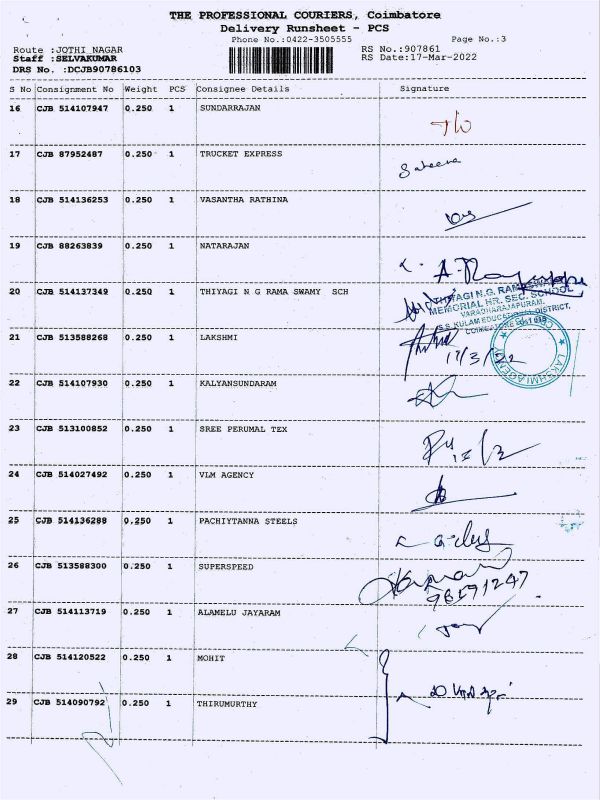 THE PROFESSIONAL COURIERS, Coimbatore
Delivery Runsheet - PCS
Phone No.:0422-3505555
Page No.:3
Route :JOTHI NAGAR
RS No.:907861
Staff :SELVAKUMAR
RS Date:17-Mar-2022
DRS No. :DCJB90786103
S No Consignment No Weight PCS Consignee Details Signature
16 CJB 514107947 0.250 1 SUNDARRAJAN
17 CJB 87952487 0.250 1 TRUCKET EXPRESS
18 CJB 514136253 0.250 1 VASANTHA RATHINA
19 CJB 88263839 0.250 1 NATARAJAN
20 CJB 514137349 0.250 1 THIYAGI N G RAMA SWAMY SCH
THIYAGI N.G. RAMASWAMY
MEMORIAL HR. SEC. SCHOOL
VARADHARAJAPURAM,
S.S. KULAM EDUCATIONAL DISTRICT,
21 CJB 513588268 0.250 1 LAKSHMI
17/3/22
LAKSHMI AGENCY
22 CJB 514107930 0.250 1 KALYANSUNDARAM
23 CJB 513100852 0.250 1 SREE PERUMAL TEX
24 CJB 514027492 0.250 1 VLM AGENCY
25 CJB 514136288 0.250 1 PACHIYTANNA STEELS
26 CJB 513588300 0.250 1 SUPERSPEED
27 CJB 514113719 0.250 1 ALAMELU JAYARAM
28 CJB 514120522 0.250 1 MOHIT
29 CJB 514090792 0.250 1 THIRUMURTHY